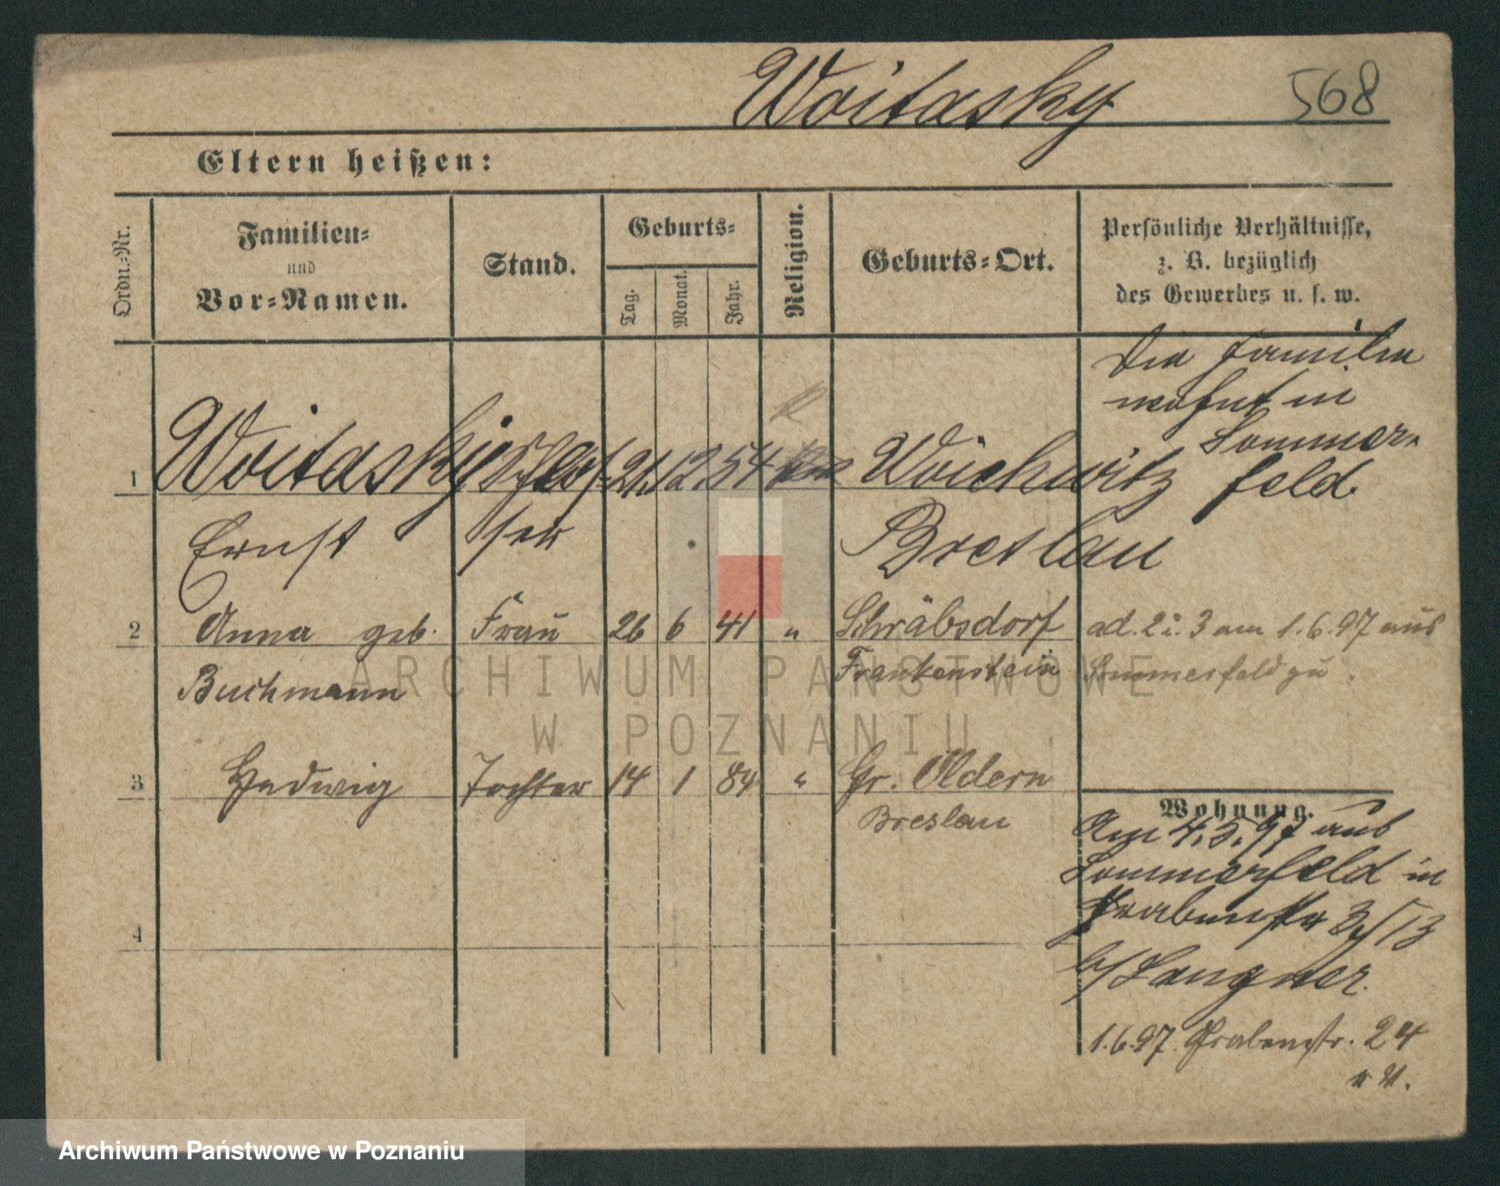 Woitasky 568
Eltern heißen:
Ordn.-Nr.
Familien-
und
Vor-Namen.
Stand.
Geburts-
Tag.
Monat.
Jahr.
Religion.
Geburts-Ort.
Persönliche Verhältnisse,
z. B. bezüglich
des Gewerbes u. s. w.
Die Familie
wohnt in
Sommer-
feld
1 Woitasky Schlos- 21 12 54 Woichwitz
Ernst ser Breslau
2 Anna geb. Frau 26 6 41 " Schräbsdorf ad. 2 u. 3 am 1.6.97 aus
Buchmann Frankenstein Sommerfeld zu.
3 Hedwig Tochter 14 1 84 " Gr. Oldern
Breslau
Wohnung.
Am 4.3.97 aus
Sommerfeld in
Grabenstr 3/13
b/Langner.
4
1.6.97 Grabenstr. 24
ARCHIWUM PAŃSTWOWE
W POZNANIU
Archiwum Państwowe w Poznaniu